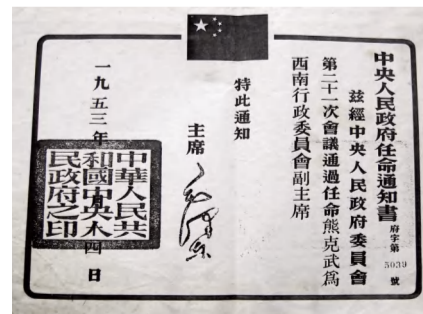 中央人民政府任命通知書 府字第5039號
茲經中央人民政府委員會
第二十一次會議通過任命熊克武爲
西南行政委員會副主席
特此通知
主席 毛澤東
一九五三年 四日
中華人民共
和國中央人
民政府之印